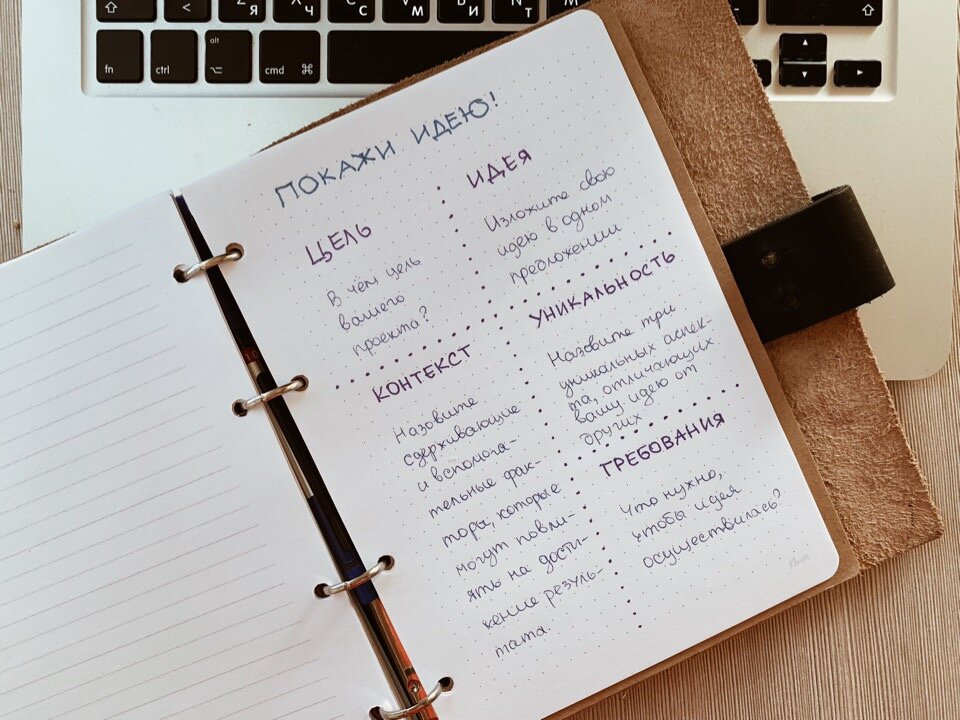 ⇧ Z Я X Ч C С V М B И N Т М ⇧
fn ctrl alt ⌥ cmd ⌘
ПОКАЖИ ИДЕЮ!
ЦЕЛЬ
В чём цель
вашего
проекта?
ИДЕЯ
Изложите свою
идею в одном
предложении
КОНТЕКСТ
Назовите
сдерживающие
и вспомога-
тельные фак-
торы, которые
могут повли-
ять на дости-
жение резуль-
тата.
УНИКАЛЬНОСТЬ
Назовите три
уникальных аспек-
та, отличающих
вашу идею от
других
ТРЕБОВАНИЯ
Что нужно,
чтобы идея
осуществилась?